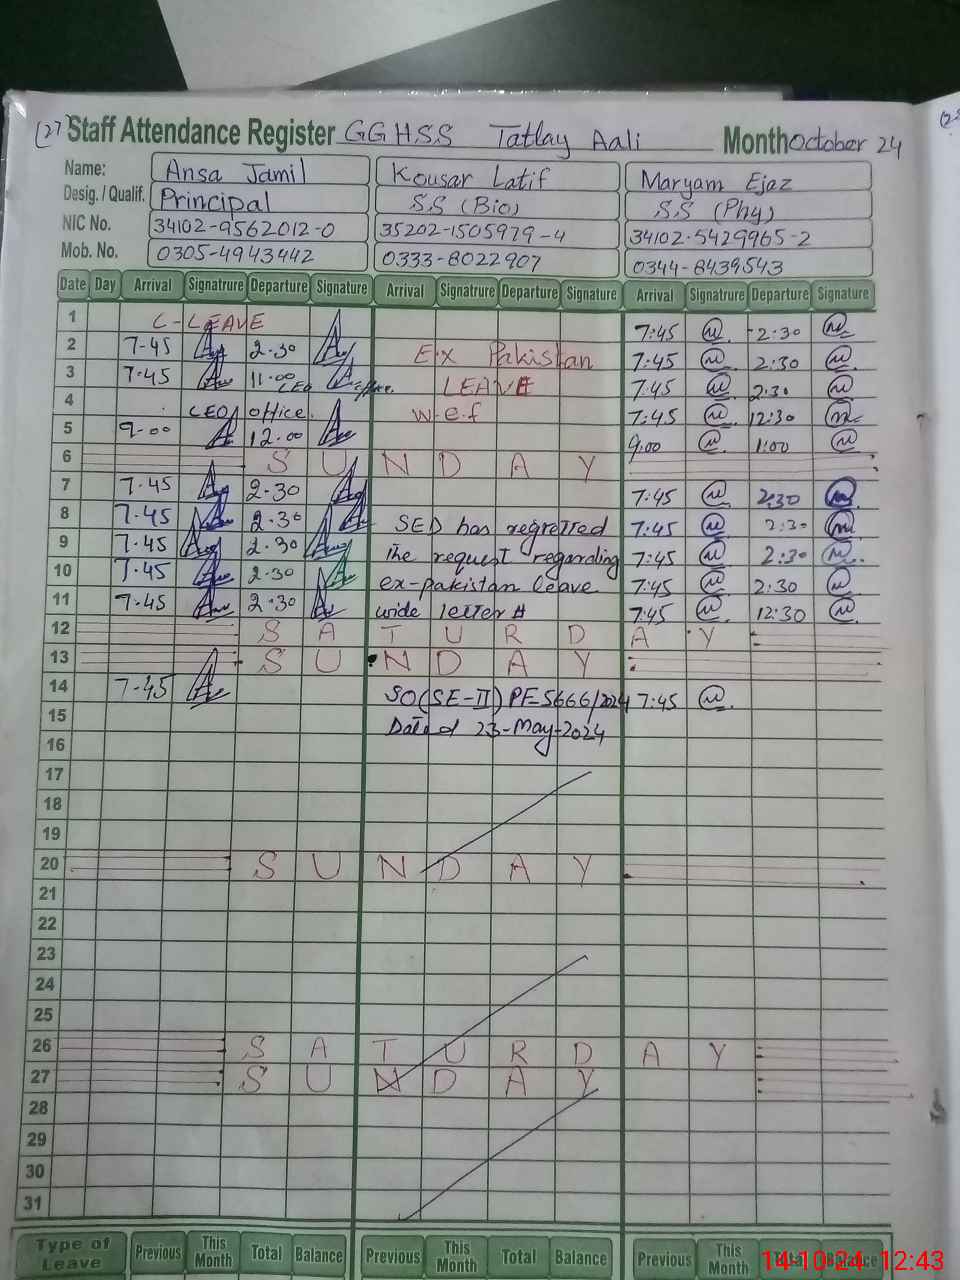 (27) Staff Attendance Register GGHSS Tatlay Aali Month October 24
Name: Ansa Jamil Kousar Latif Maryam Ejaz
Desig. / Qualif. Principal S.S (Bio) S.S (Phy)
NIC No. 34102-9562012-0 35202-1505979-4 34102-5429965-2
Mob. No. 0305-4943442 0333-8022907 0344-8439543
Date Day Arrival Signatrure Departure Signature Arrival Signatrure Departure Signature Arrival Signatrure Departure Signature
1 C-LEAVE 7:45 2:30
2 7-45 2.30 Ex Pakistan 7:45 2:30
3 7.45 11.00 CEO office. LEAVE 7:45 2:30
4 CEO office. w.e.f 7:45 12:30
5 9-00 12.00 9:00 1:00
6 S U N D A Y
7 7.45 2.30 7:45 2:30
8 7.45 2.30 SED has regretted 7:45 2:30
9 7.45 2.30 the request regarding 7:45 2:30
10 7.45 2.30 ex-pakistan leave 7:45 2:30
11 7.45 2.30 wide letter # 7:45 12:30
12 S A T U R D A Y
13 S U N D A Y
14 7-45 SO(SE-II) PF-5666/2024 7:45
15 Dated 23-May-2024
16
17
18
19
20 S U N D A Y
21
22
23
24
25
26 S A T U R D A Y
27 S U N D A Y
28
29
30
31
Type of Leave Previous This Month Total Balance Previous This Month Total Balance Previous This Month Total Balance
14-10-24 12:43